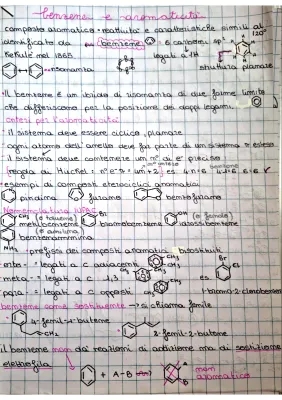 benzene e aromaticità
composto aromatico → reattività e caratteristiche simili al
identificato da → benzene 6 carboni sp² 120°
Kekulé nel 1865 legati a H
risonanza struttura planare
• Il benzene è un ibrido di risonanza di due forme limite
che differiscono per la posizione dei doppi legami.
criteri per l'aromaticità
• il sistema deve essere ciclico, planare
• ogni atomo dell'anello deve far parte di un sistema π esteso
• il sistema deve contenere un n° di e⁻ preciso
regola di Hückel = n° e⁻ π = 4n+2 es. 4n=6 4+2=6 ✓
• esempi di composti eterociclici aromatici
piridina furano benzofurano
Nomenclatura IUPAC
CH₃ (è toluene) Br OH (è fenolo)
metilbenzene bromobenzene idrossibenzene
(è anilina)
benzenammina
NH₂ prefissi dei composti aromatici bisostituiti
orto- = legati a C adiacenti CH₃ CH₃
meta- = legati a C CH₃ es Br Cl
para- = legati a C opposti CH₃ 1-bromo-2-clorobenzene
benzene come sostituente → si chiama fenile
4-fenil-1-butene
CH₂ 2-fenil-2-butene
il benzene non dà reazioni di addizione ma di sostituzione
elettrofila
+ A-B A B non
aromatico